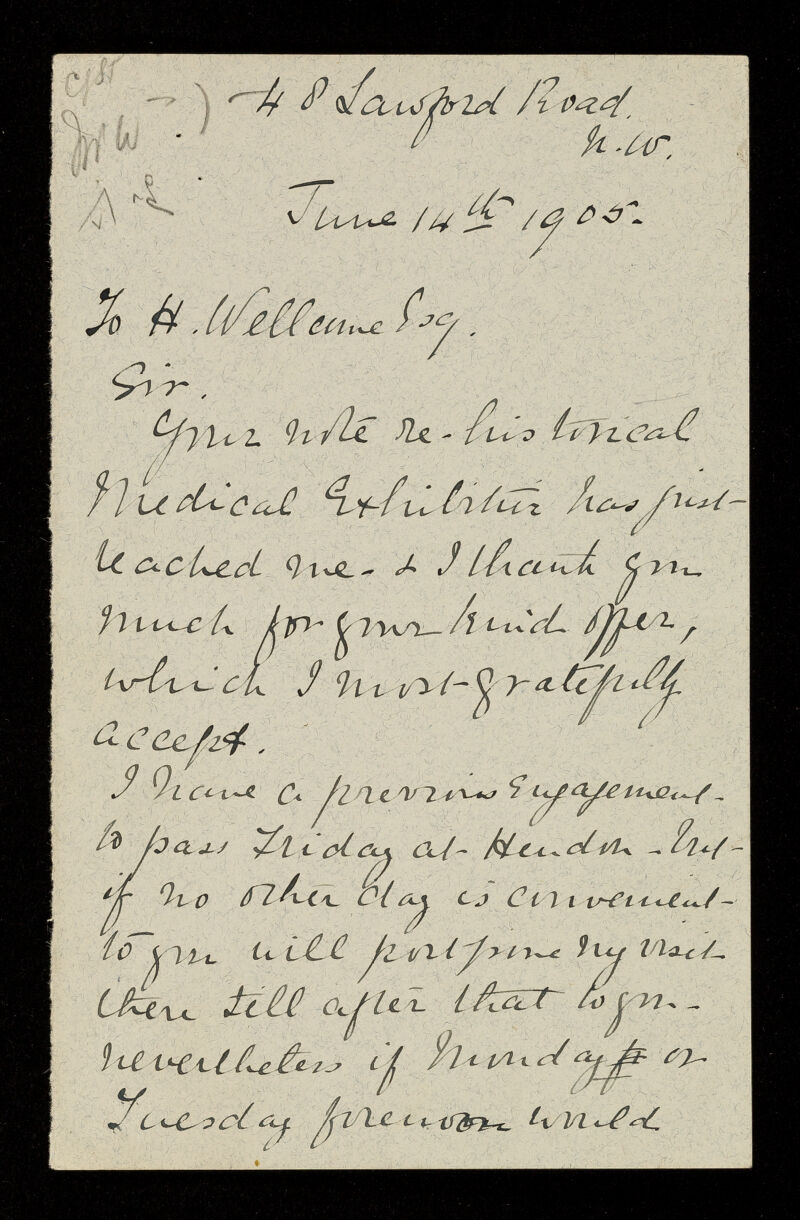 48 Lawford Road.
N.W.
June 14th 1905.
To H. Wellcome Esq.
Sir.
Your note re-historical
Medical Exhibition has just
reached me - & I thank you
much for your kind offer,
which I most gratefully
accept.
I have a previous engagement
to pass Friday at Hendon - but
if no other day is convenient
to you will postpone my visit
there till after that to you -
nevertheless if Monday or
Tuesday forenoon would